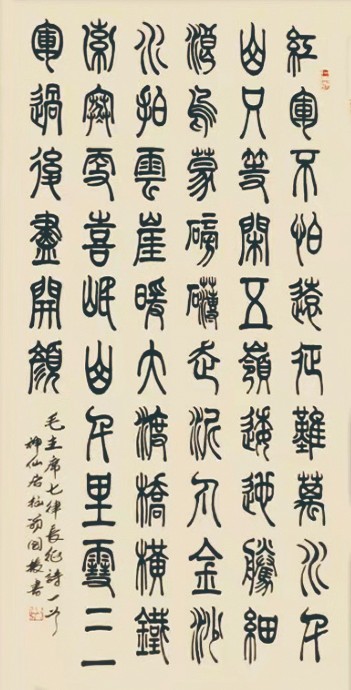 紅軍不怕遠征難萬水千
山只等閑五嶺逶迤騰細
浪烏蒙磅礴走泥丸金沙
水拍雲崖暖大渡橋橫鐵
索寒更喜岷山千里雪三
軍過後盡開顏
毛主席七律長征詩一首